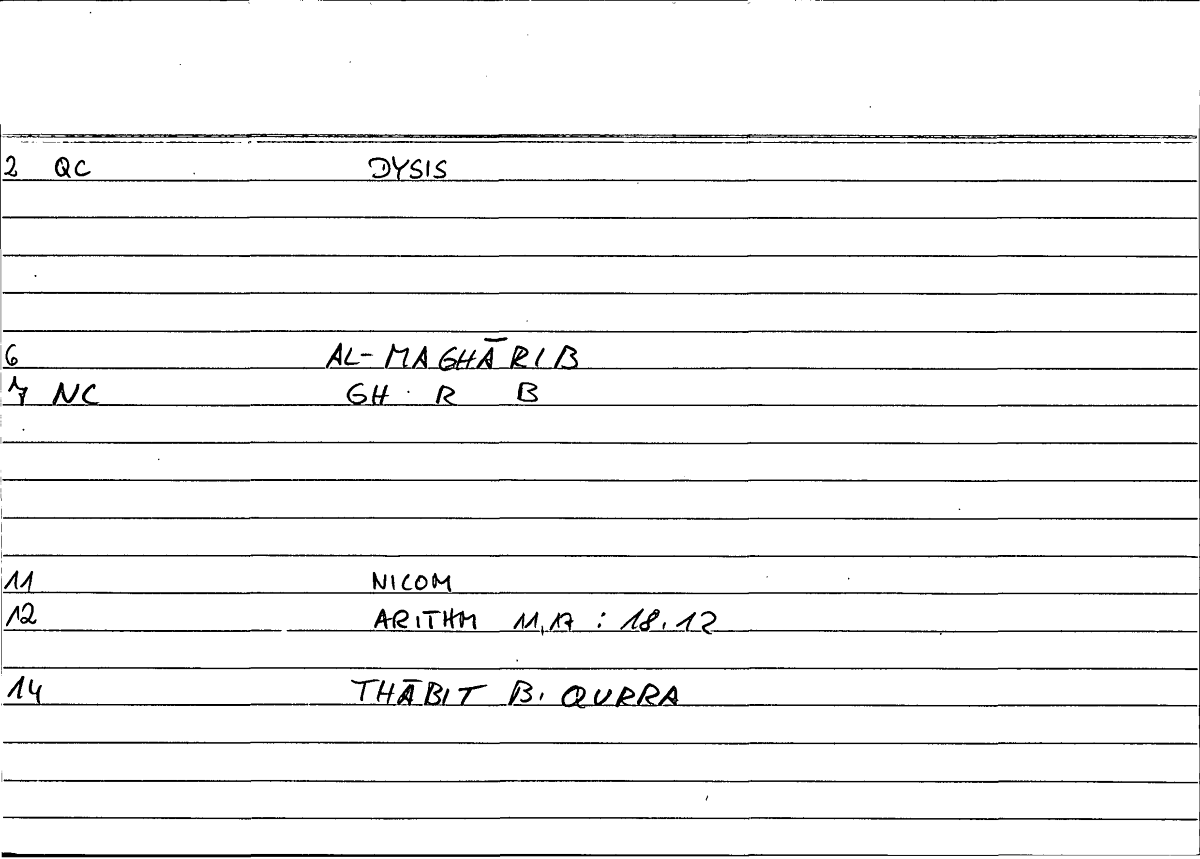 2 QC DYSIS
6 AL-MAGHĀRIB
7 NC GH R B
11 NICOM
12 ARITHM 11,17 : 18.12
14 THĀBIT B. QURRA